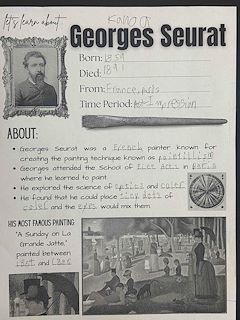 let's learn about
Georges Seurat
Born: 1859
Died: 1891
From: France, Paris
Time Period: Post-Impression
ABOUT:
• Georges Seurat was a French painter known for
creating the painting technique known as pointillism
• Georges attended the School of Fine Arts in Paris
where he learned to paint.
• He explored the science of optics and color
• He found that he could place tiny dots of
color and the eyes would mix them.
HIS MOST FAMOUS PAINTING
"A Sunday on La
Grande Jatte,"
painted between
1884 and 1886